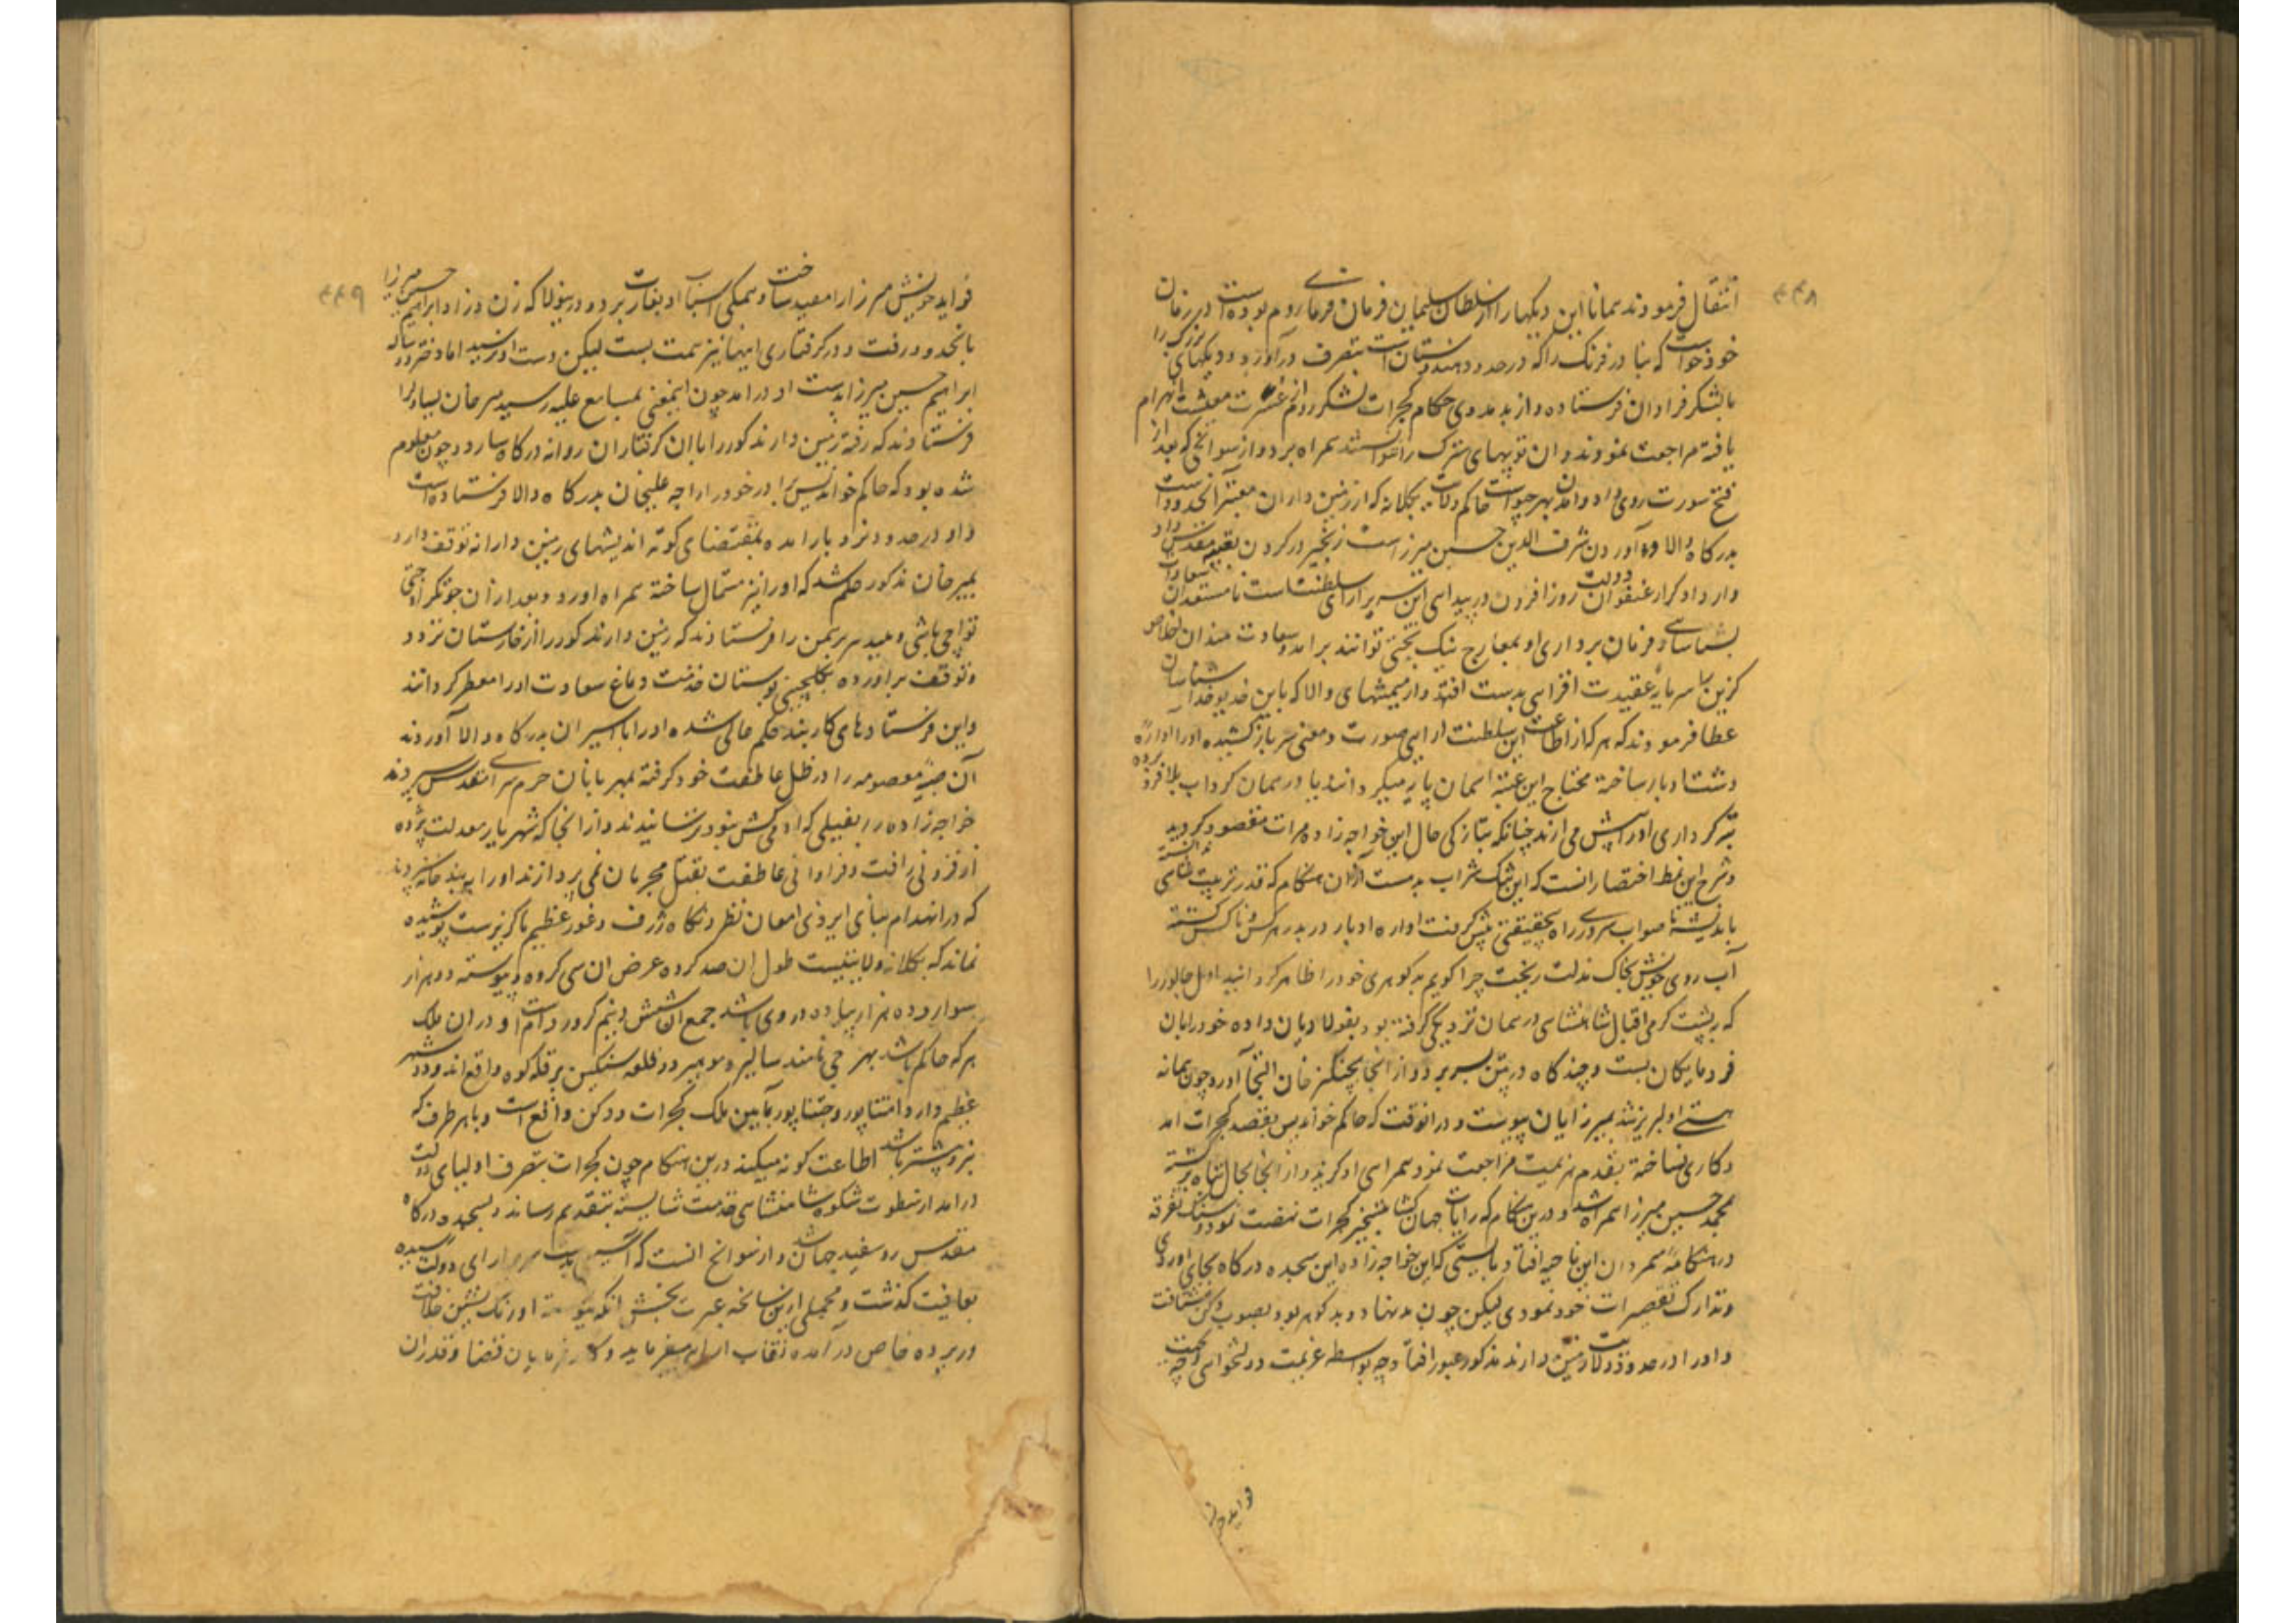 ۴۴۸
انتقال فرمودند همانا این دیگها را سلطان سلیمان فرمان فرمای روم بوده است در زمان
خود خواست که بنادر فرنگ را که در حدود هندوستان است بتصرف درآورد و دیگهای بزرگ را
با لشکر فراوان فرستاده و از بد مددی حکام گجرات لشکر روم از عسرت معیشت انهزام
یافته مراجعت نمودند و ان توپهای سترک را نتوانستند همراه برد و از سوانحی که بعد از
فتح سورت روی داد و امدن بهرجیو است حاکم ولایت بکلانه که از زمین داران معتبر انحدود است
بدرکاه والا و آوردن شرف الدین حسین میرزا است زنجیر در گردن
دولت روزافزون در پیدایی این سریرارای سلطنت است تا مستعدان سعادت
بشناسایی و فرمان برداری او بمعارج نیک بختی توانند برامد و سعادت مندان اخلاص
گزین را سرمایه عقیدت افزایی بدست افتد و از میمنتهای والا که باین خدیو خدا شناسان
عطا فرمودند که هر که از اطاعت این سلطنت ارای صورت و معنی سر باز کشیده او را اواره
دشت ادبار ساخته محتاج این عتبه اسمان پایه میگردانند یا در همان گرداب بلا فرو برده
تیره کرداری او را پیش می ارند چنانکه بتازگی حال این خواجه زاده مرات مقصود گردید
و شرح این نمط اختصار انست که این تنک شراب بدمست ازان هنگام که قدر تربیت شاهی ندانسته
باندیشه ناصواب سر در راه بی حقیقتی پیش گرفت اواره ادبار در بدر هر کس و ناکس گشته
آب روی خویش بخاک مذلت ریخت چرا گویم بد گوهری خود را ظاهر گردانید اول جالور را
که به پشت گرمی اقبال شاهنشاهی در همان نزدیکی گرفته بود بفولادیان داده خود را بان
فرومایگان بست و چندگاه در پتن بسر برد و از انجا بچنگیز خان التجا آورد و چون پیمانه
هستی او لبریز شد بمیرزایان پیوست و در انوقت که حاکم خواندیس بقصد گجرات امد
و کاری نساخته بقدم هزیمت مراجعت نمود همراهی او گزید و از انجا بحال تباه برگشته
محمد حسین میرزا همراه شد و درین هنگام که رایات جهان گشا بتسخیر گجرات نهضت نمود و سنگ تفرقه
در هنگامه متمردان این ناحیه افتاد بایستی که این خواجه زاده این سجده درگاه بجای اوردی
و تدارک تقصیرات خود نمودی لیکن چون بدنهاد و بد گوهر بود بصوب دکن شتافت
و او را در حدود ولایت زمین دار مذکور عبور افتاد چه بواسطه عزیمت دولتخواهی و چه
فواید خو
۴۴۹
فواید خویش میرزا را مقید ساخت و همگی اسباب او بغارت برد و درینولا که زن و زاد ابراهیم حسین میرزا
بانحدود رفت و در گرفتاری اینها نیز همت بست لیکن دست او نرسید اما دختر دو ساله
ابراهیم حسین میرزا بدست او درامد چون اینمعنی بمسامع علیه رسید میر خان یساول را
فرستادند که رفته زمین دار مذکور را با ان گرفتاران روانه درگاه سازد و چون معلوم
شده بود که حاکم خواندیس برادر خود راجه علیخان بدرگاه والا فرستاده است
و او در حدود نزد باز امده بمقتضای کوته اندیشهای زمین دارانه توقف دارد
بمیر خان مذکور حکم شد که او را نیز مستمال ساخته همراه اورد و بعد از ان
تواچی باشی و میر برهمن را فرستادند که زمین دار مذکور را از خارستان تردد
و توقف براورده بگلچینی بوستان خدمت دماغ سعادت او را معطر گردانند
و این فرستادهای کاربند حکم عالی شده او را با اسیران بدرگاه والا آوردند
آن صبیه معصومه را در ظل عاطفت خود گرفته بمهربانان حرم سرای مقدس سپردند
خواجه زاده را بفیلی که ادمی کش نبود ترسانیدند و از انجا که شهریار معدلت پژوه
از فزونی رافت و فراوانی عاطفت بقتل مجرمان نمی پردازند او را به بند خانه سپردند
که در انهدام بنای ایزدی امعان نظر و نگاه ژرف و غور عظیم ناگزیرست پوشیده
نماند که بکلانه ولایتیست طول ان صد کروه عرض ان سی کروه و پیوسته دو هزار
سوار و ده هزار پیاده در وی باشد جمع ان شش و نیم کرور دام است و در ان ملک
هر که حاکم باشد بهرجی نامند سالیر و مولهیر دو قلعه سنگین بر قله کوه واقع اند و دو شهر
عظیم دارد انتاپور و چنتاپور مابین ملک گجرات و دکن واقع است و با هر طرف که
نیرو بیشتر باشد اطاعت گونه میکند درین هنگام چون گجرات بتصرف اولیای دولت
درامد از سطوت شکوه شاهنشاهی خدمت شایسته بتقدیم رساند و بسجده درگاه
مقدس رو سفید جهان شد و از سوانح انست که ارای دولت رسیده
بعافیت گذشت و مجملی ازین سانحه عبرت بخش انکه پیوسته اورنگ نشین خلافت
در پرده خاص درآمده نقاب میفرماید و کارفرمایان قضا و قدر ان